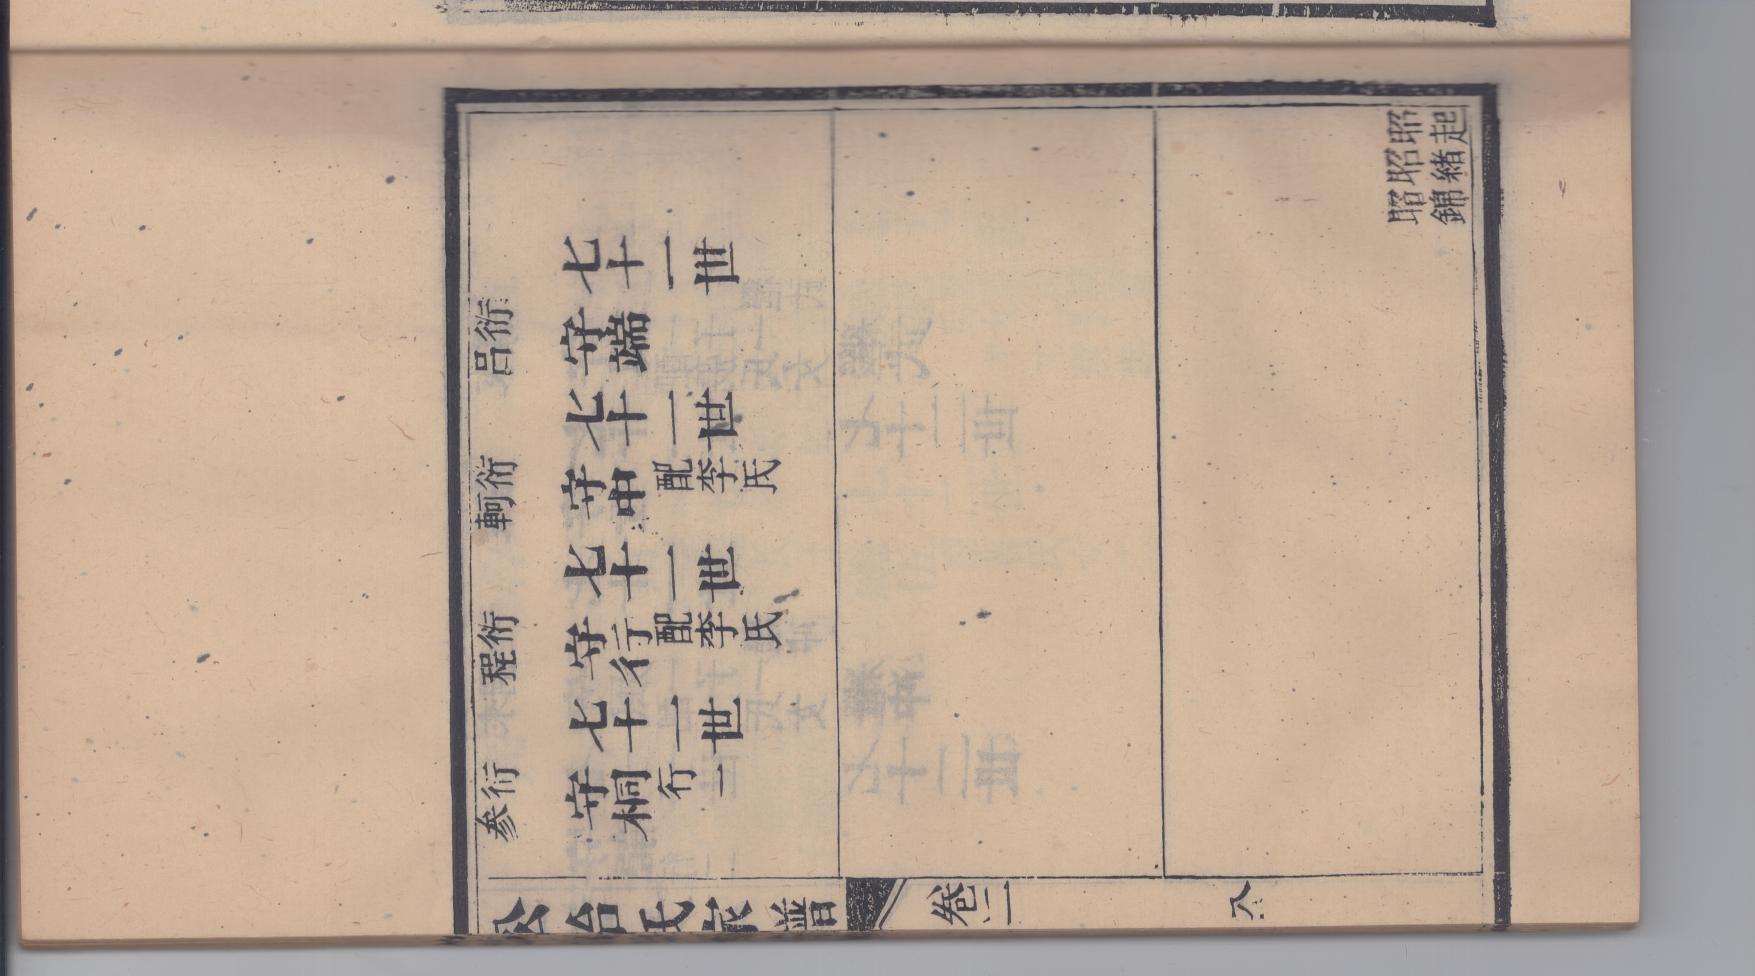 昭起
昭緒
昭錦
七十一世
衍呂
守端
七十一世
衍軻
守中 配李氏
七十一世
衍程
守行 配李氏
七十一世
衍参
守桐 行一
氏宗譜 卷二 八